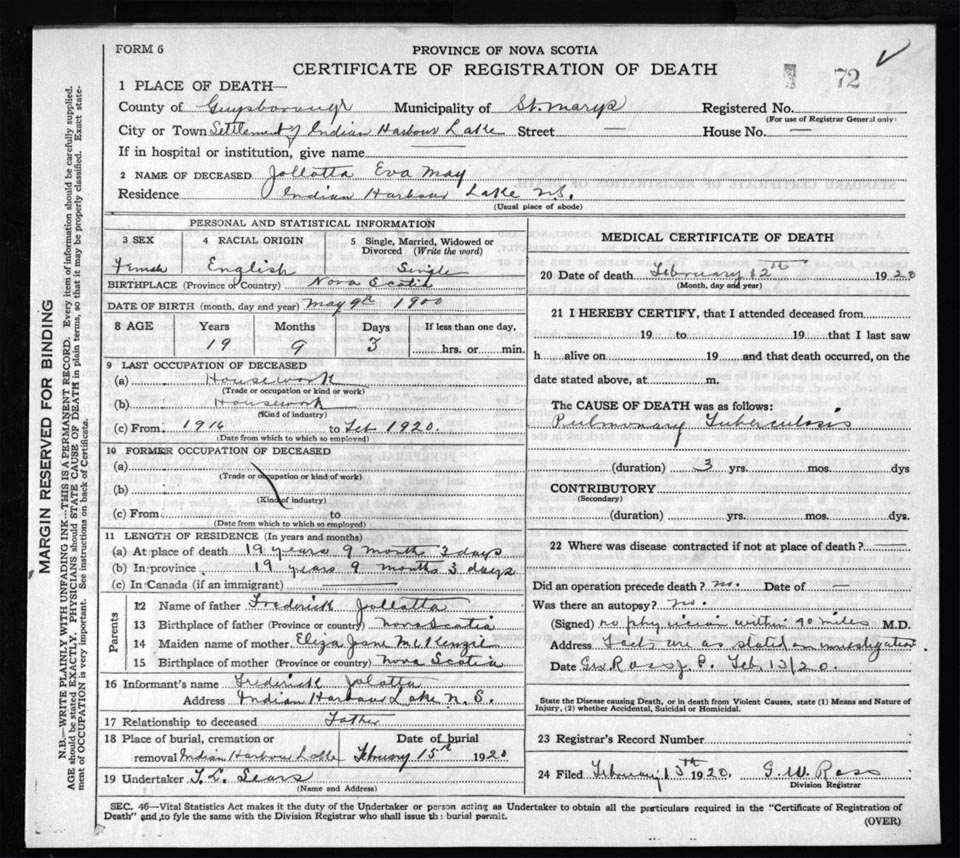 FORM 6
PROVINCE OF NOVA SCOTIA
CERTIFICATE OF REGISTRATION OF DEATH
72
1 PLACE OF DEATH—
County of Guysborough Municipality of St. Marys Registered No.
(For use of Registrar General only)
City or Town Settlement of Indian Harbour Lake Street — House No. —
If in hospital or institution, give name
2 NAME OF DECEASED Jollotta Eva May
Residence Indian Harbour Lake N.S.
(Usual place of abode)
PERSONAL AND STATISTICAL INFORMATION
3 SEX 4 RACIAL ORIGIN 5 Single, Married, Widowed or Divorced (Write the word)
Female English Single
BIRTHPLACE (Province or Country) Nova Scotia
DATE OF BIRTH (month, day and year) May 9th 1900
8 AGE Years Months Days If less than one day,
19 9 3 hrs. or min.
9 LAST OCCUPATION OF DECEASED
(a) Housework
(Trade or occupation or kind of work)
(b) Housework
(Kind of industry)
(c) From 1916 to Feb 1920.
(Date from which to which so employed)
10 FORMER OCCUPATION OF DECEASED
(a)
(Trade or occupation or kind of work)
(b)
(Kind of industry)
(c) From to
(Date from which to which so employed)
11 LENGTH OF RESIDENCE (In years and months)
(a) At place of death 19 years 9 month 3 days
(b) In province 19 years 9 months 3 days
(c) In Canada (if an immigrant)
Parents
12 Name of father Frederick Jollotta
13 Birthplace of father (Province or country) Nova Scotia
14 Maiden name of mother Eliza Jane McKenzie
15 Birthplace of mother (Province or country) Nova Scotia
16 Informant's name Frederick Jolatta
Address Indian Harbour Lake N. S.
17 Relationship to deceased Father
18 Place of burial, cremation or removal Indian Harbour Lake Date of burial February 15th 1920
19 Undertaker T. L. Sears
(Name and Address)
MEDICAL CERTIFICATE OF DEATH
20 Date of death February 12th 1920
(Month, day and year)
21 I HEREBY CERTIFY, that I attended deceased from
19 to 19 that I last saw
h alive on 19 and that death occurred, on the
date stated above, at m.
The CAUSE OF DEATH was as follows:
Pulmonary Tuberculosis
(duration) 3 yrs. mos. dys
CONTRIBUTORY
(Secondary)
(duration) yrs. mos. dys.
22 Where was disease contracted if not at place of death? —
Did an operation precede death? no. Date of —
Was there an autopsy? no.
(Signed) no physician within 40 miles M.D.
Address Facts are as stated on investigation
Date G.W. Ross J. P. Feb 13/20.
State the Disease causing Death, or in death from Violent Causes, state (1) Means and Nature of
Injury, (2) whether Accidental, Suicidal or Homicidal.
23 Registrar's Record Number
24 Filed February 15th 1920. G. W. Ross
Division Registrar
SEC. 46—Vital Statistics Act makes it the duty of the Undertaker or person acting as Undertaker to obtain all the particulars required in the "Certificate of Registration of
Death" and to fyle the same with the Division Registrar who shall issue the burial permit.
(OVER)
MARGIN RESERVED FOR BINDING
N.B.—WRITE PLAINLY WITH UNFADING INK—THIS IS A PERMANENT RECORD. Every item of information should be carefully supplied.
AGE should be stated EXACTLY. PHYSICIANS should STATE CAUSE OF DEATH in plain terms, so that it may be properly classified. Exact state-
ment of OCCUPATION is very important. See instructions on back of Certificate.